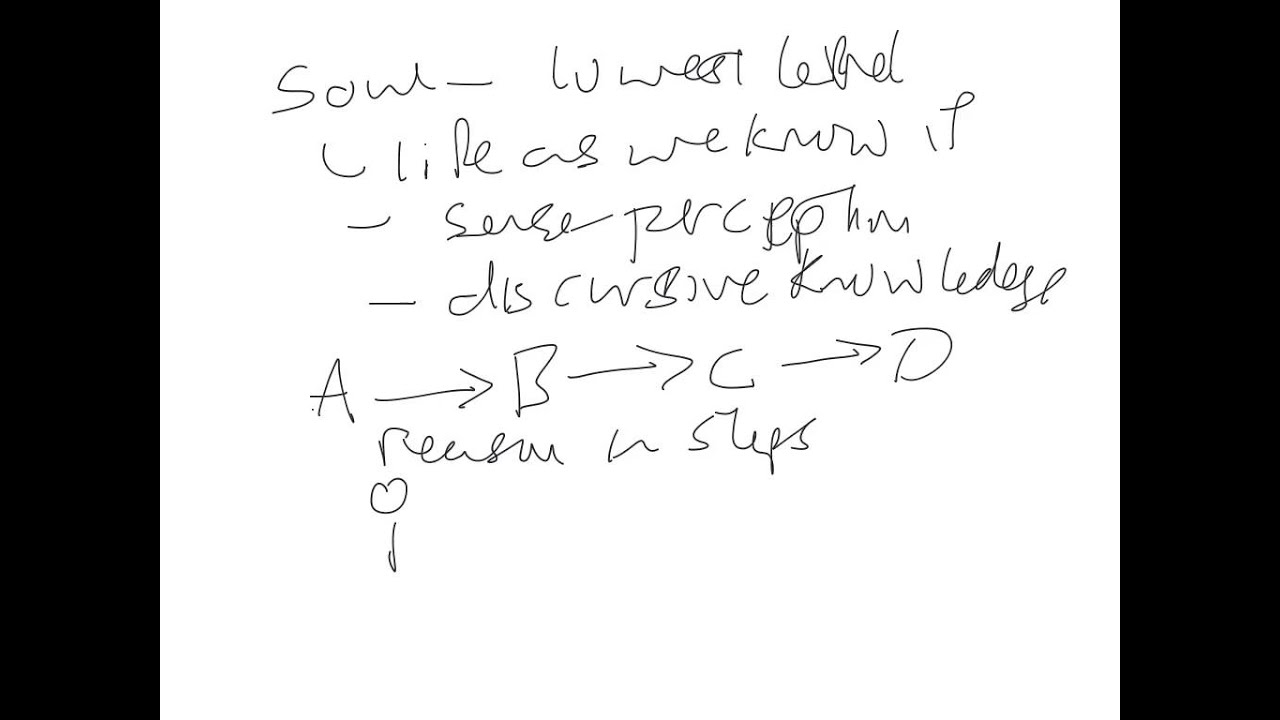 Soul – lowest level
life as we know it
– sense perception
– discursive knowledge
A → B → C → D
reason in steps